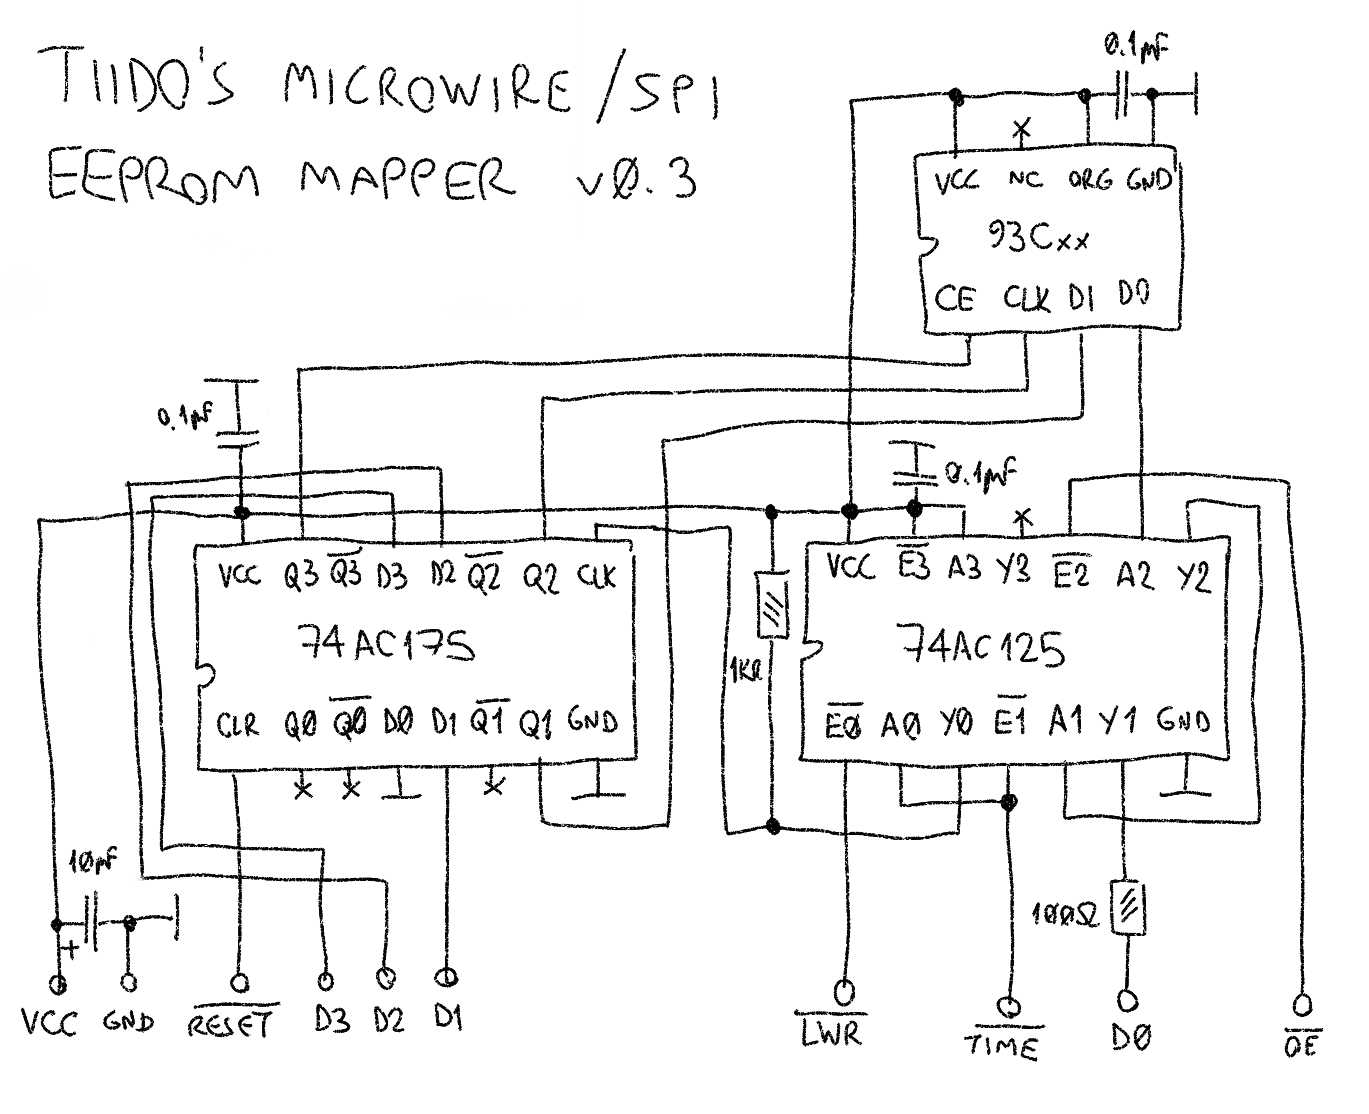 TIIDO'S MICROWIRE/SPI
EEPROM MAPPER v0.3
0.1µF
VCC NC ORG GND
93Cxx
CE CLK DI DO
0.1µF
0.1µF
VCC Q3 Q3 D3 D2 Q2 Q2 CLK
74AC175
CLR Q0 Q0 D0 D1 Q1 Q1 GND
1KΩ
VCC E3 A3 Y3 E2 A2 Y2
74AC125
E0 A0 Y0 E1 A1 Y1 GND
10µF
+
100Ω
VCC GND RESET D3 D2 D1
LWR TIME D0 OE